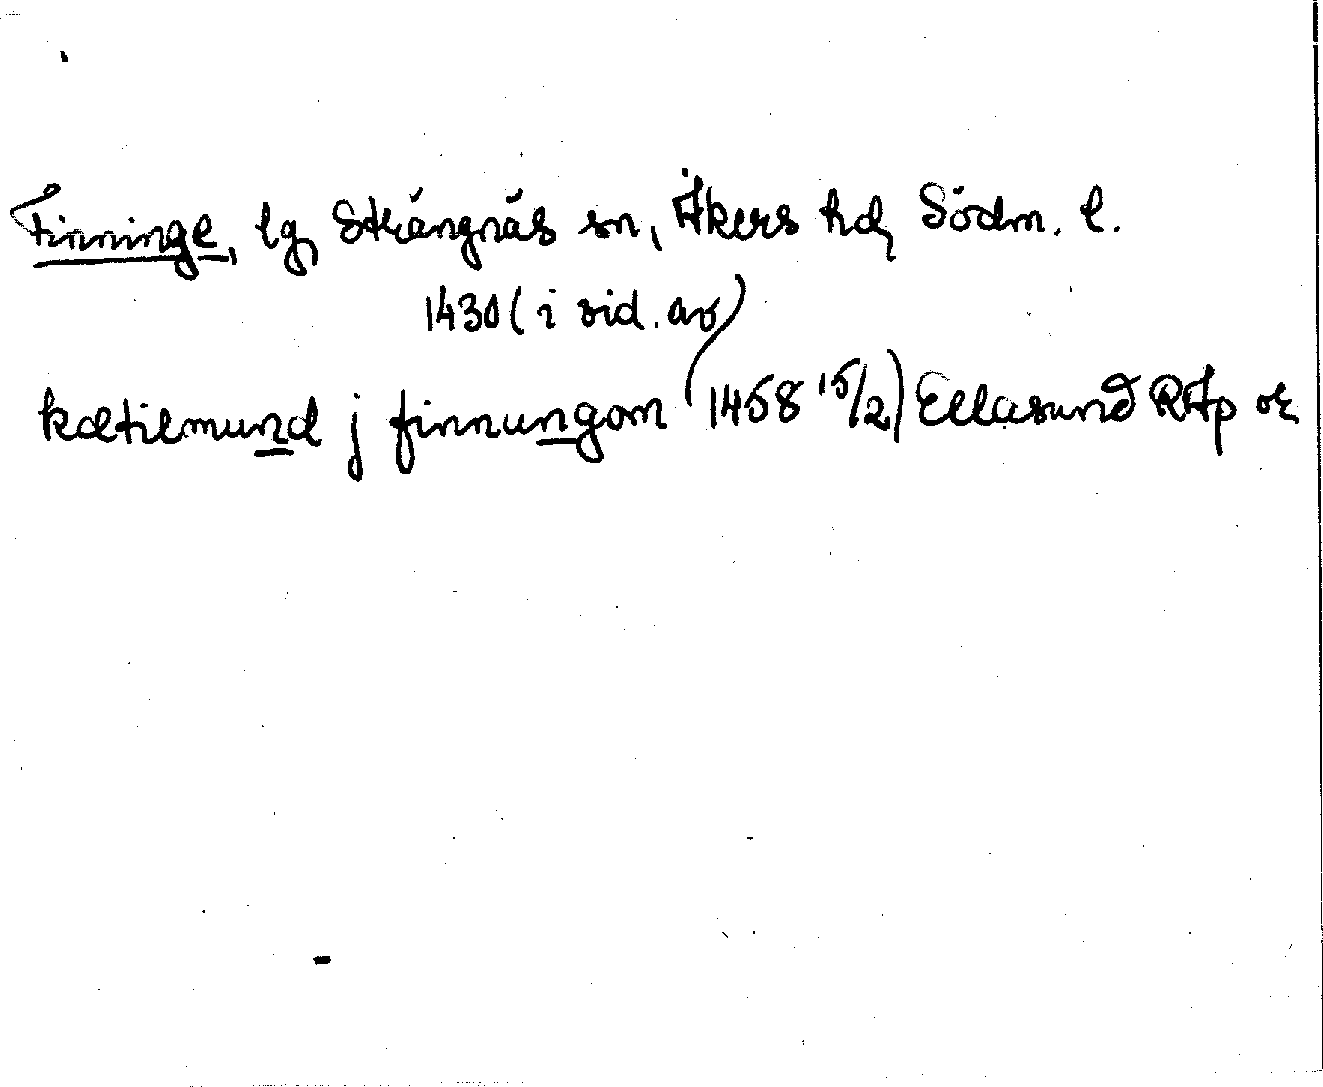 Finninge, lg, Strängnäs sn, Åkers hd, Södm. l.
1430 (i vid. av)
kætilmund j finnungom (1458 15/2) Ellasund RAp or